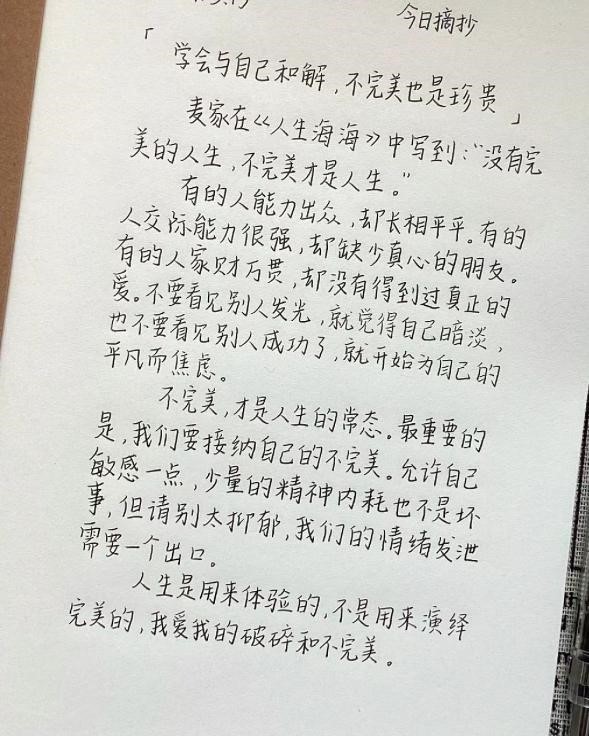 今日摘抄
「学会与自己和解，不完美也是珍贵」
麦家在《人生海海》中写到：“没有完
美的人生，不完美才是人生。”
有的人能力出众，却长相平平。有的
人交际能力很强，却缺少真心的朋友。
有的人家财万贯，却没有得到过真正的
爱。不要看见别人发光，就觉得自己暗淡，
也不要看见别人成功了，就开始为自己的
平凡而焦虑。
不完美，才是人生的常态。最重要的
是，我们要接纳自己的不完美。允许自己
敏感一点，少量的精神内耗也不是坏
事，但请别太抑郁，我们的情绪发泄
需要一个出口。
人生是用来体验的，不是用来演绎
完美的，我爱我的破碎和不完美。